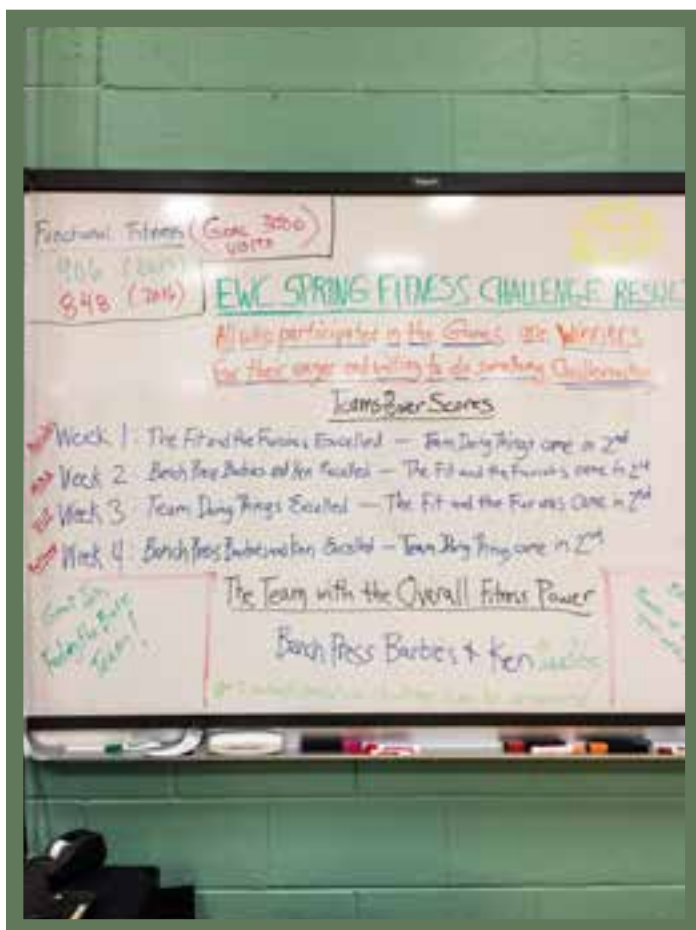 Functional Fitness (Goal 3000
visits)
906 (2015)
848 (2016)
EWC SPRING FITNESS CHALLENGE RESUL
All who participated in the Games are Winners
For their eager and willing to do something Challenging
Teams Power Scores
Week 1: The Fit and the Furious Excelled — Team Doing Things came in 2nd
Week 2: Bench Press Barbies and Ken Excelled — The Fit and the Furious came in 2nd
Week 3: Team Doing Things Excelled — The Fit and the Furious Came in 2nd
Week 4: Bench Press Barbies and Ken Excelled — Team Doing Things came in 2nd
The Team with the Overall Fitness Power
Bench Press Barbies & Ken
Great Job
Team!